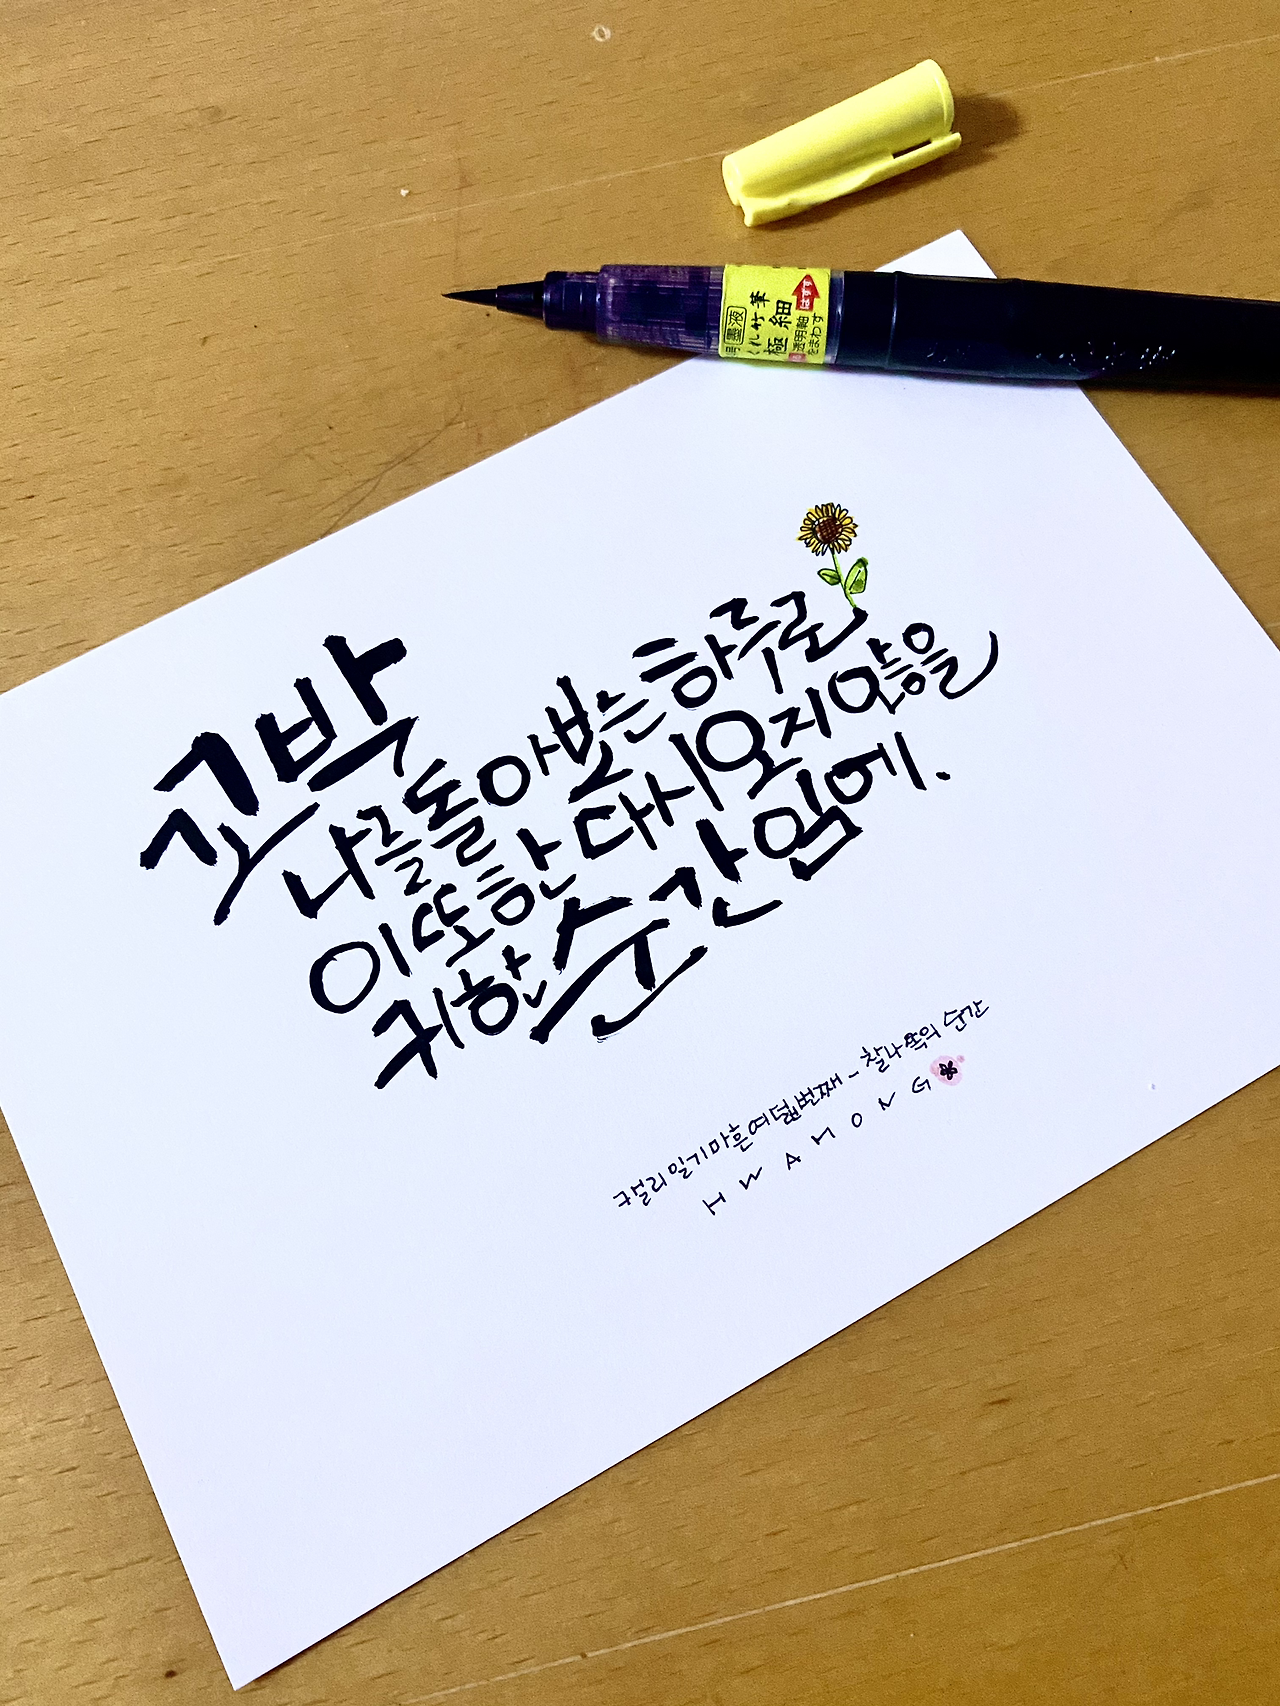 はずす
くれ竹筆
極細
墨液
透明軸
をまわす
꼬박
나를 돌아보는 하루로
이 또한 다시 오지 않음을
귀한 순간임에.
일기 마흔여덟번째 - 찰나 순간
HWAHONG